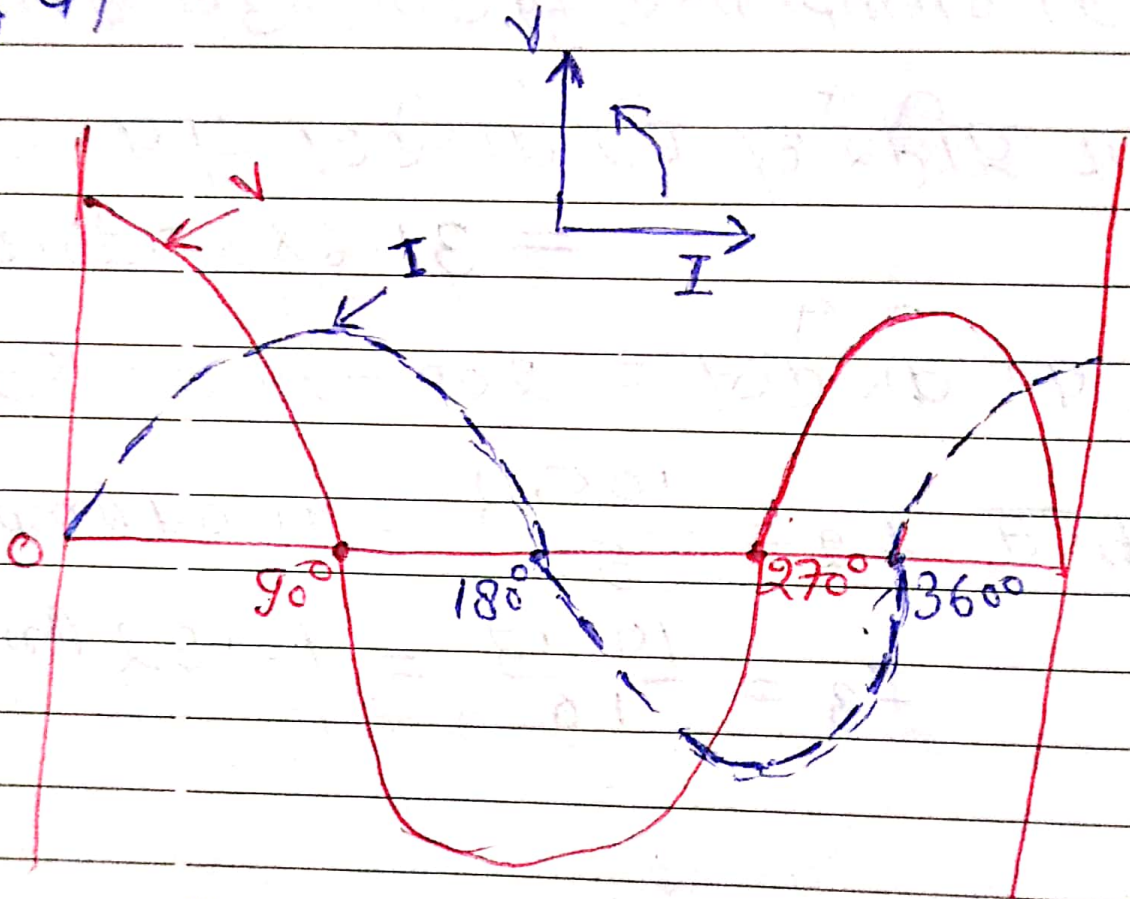 V
V
I
I
0
90°
180°
270°
360°